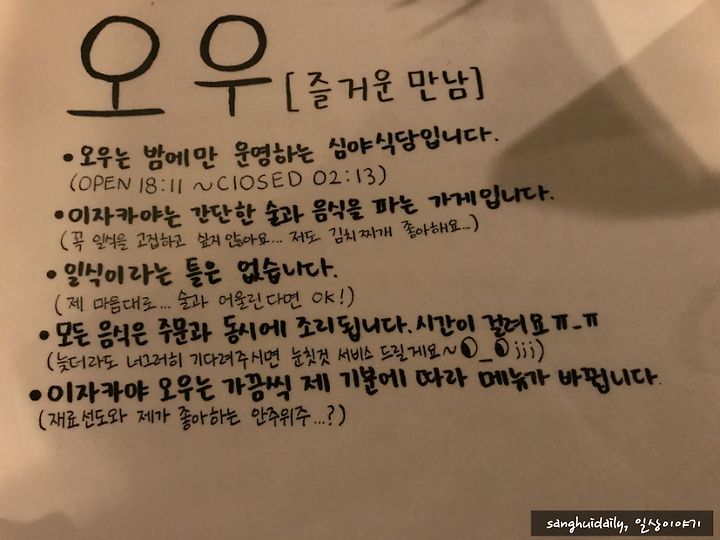 오우 [즐거운 만남]
• 오우는 밤에만 운영하는 심야식당입니다.
(OPEN 18:11 ~ ClOSED 02:13)
• 이자카야는 간단한 술과 음식을 파는 가게입니다.
(꼭 일식을 고집하고 싶지 않아요... 저도 김치찌개 좋아해요...)
• 일식이라는 틀은 없습니다.
(제 마음대로... 술과 어울린다면 OK!)
• 모든 음식은 주문과 동시에 조리됩니다. 시간이 걸려요ㅠ_ㅠ
(늦더라도 너그러히 기다려주시면 눈칫껏 서비스 드릴게요~◐_◐jjj)
• 이자카야 오우는 가끔씩 제 기분에 따라 메뉴가 바뀝니다.
(재료선도와 제가 좋아하는 안주위주...?)
sanghuidaily, 일상이야기